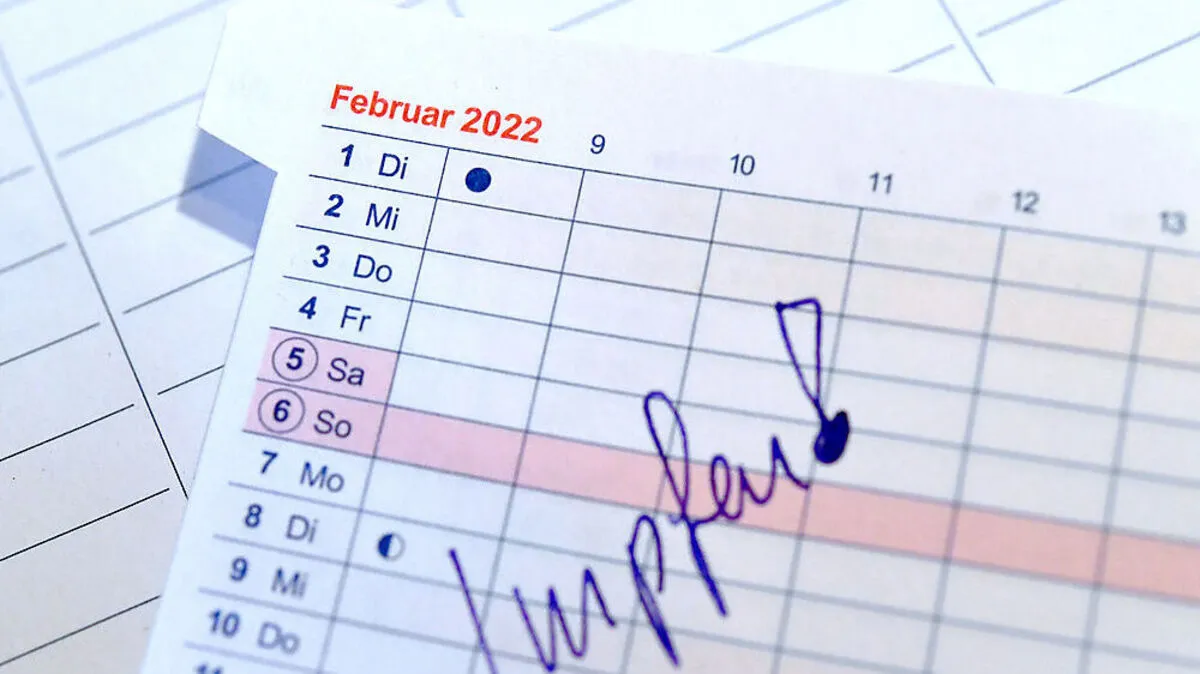 Februar 2022
9 10 11 12 13
1 Di
2 Mi
3 Do
4 Fr
5 Sa
6 So
7 Mo
8 Di
9 Mi
10 Do
11
Impfen!